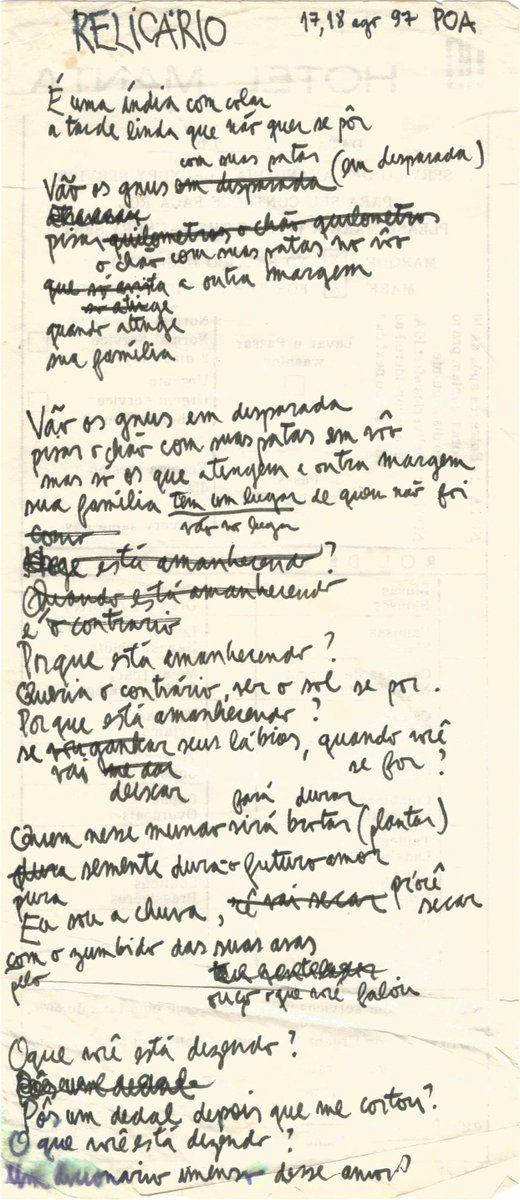 RELICÁRIO 17,18 ago 97 POA
HOTEL MANTA
É uma índia com colar
a tarde linda que não quer se pôr
com suas patas
Vão os gnus em disparada (em disparada)
pisar quilometros o chão quilometros
o chão com suas patas no vôo
que só avista a outra margem
só atinge
quando atinge
sua família
Vão os gnus em disparada
pisar o chão com suas patas em vôo
mas só os que atingem a outra margem
sua família tem um lugar de quem não foi
vão no lugar
como
Hoje está amanhecendo?
Quando está amanhecendo
é o contrário
Porque está amanhecendo?
Queria o contrário, ver o sol se por.
Porque está amanhecendo?
se vou ganhar seus lábios, quando você
vai me dar se for?
deixar
fará durar
Quem nesse mundo virá brotar (plantar)
dura semente dura o futuro amor
pura
Eu sou a chuva, cê vai secar p'ocê
secar
com o zumbido das suas asas
pelo
ouço o que você falou
O que você está dizendo?
Pôs um dedal
Pôs um dedal, depois que me cortou?
O que você está dizendo?
Um dicionário imenso desse amor?